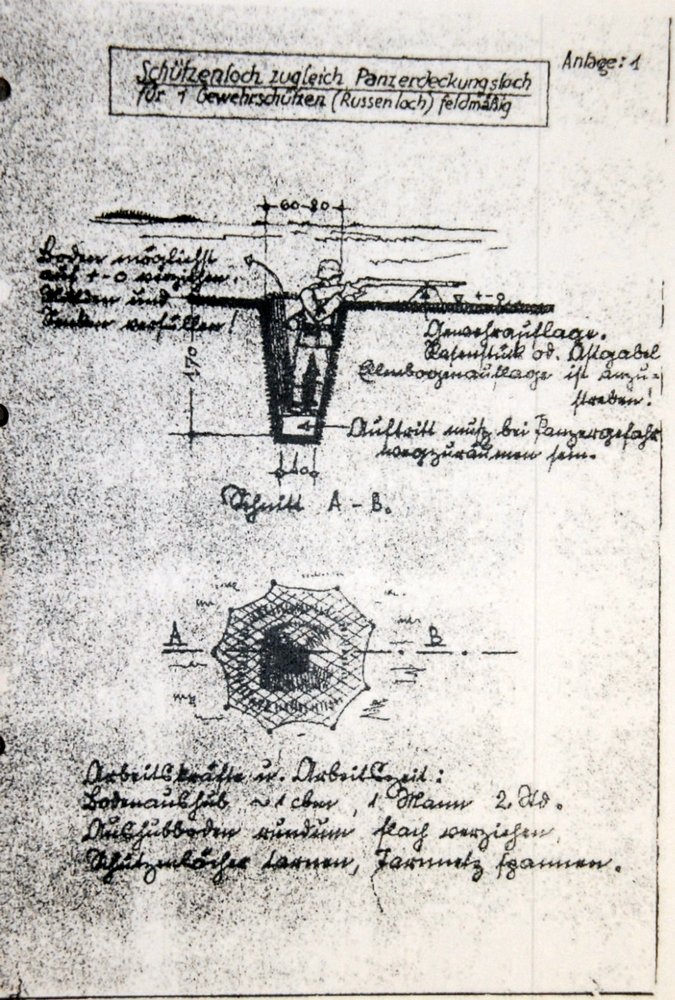 Anlage: 1
Schützenloch zugleich Panzerdeckungsloch
für 1 Gewehrschützen (Russenloch) feldmäßig
60-80
Boden möglichst
auf +-0 verziehen.
Mulden und
Senken verfüllen!
+-0
170
Gewehrauflage.
Rasenstück od. Astgabel
Ellenbogenauflage ist anzu-
streben!
Auftritt muß bei Panzergefahr
wegzuräumen sein.
Schnitt A - B.
A
B
Arbeitskräfte u. Arbeitszeit:
Bodenaushub ~ 1 cbm, 1 Mann 2 Std.
Aushubboden rundum flach verziehen,
Schützenlöcher tarnen, Tarnnetz spannen.